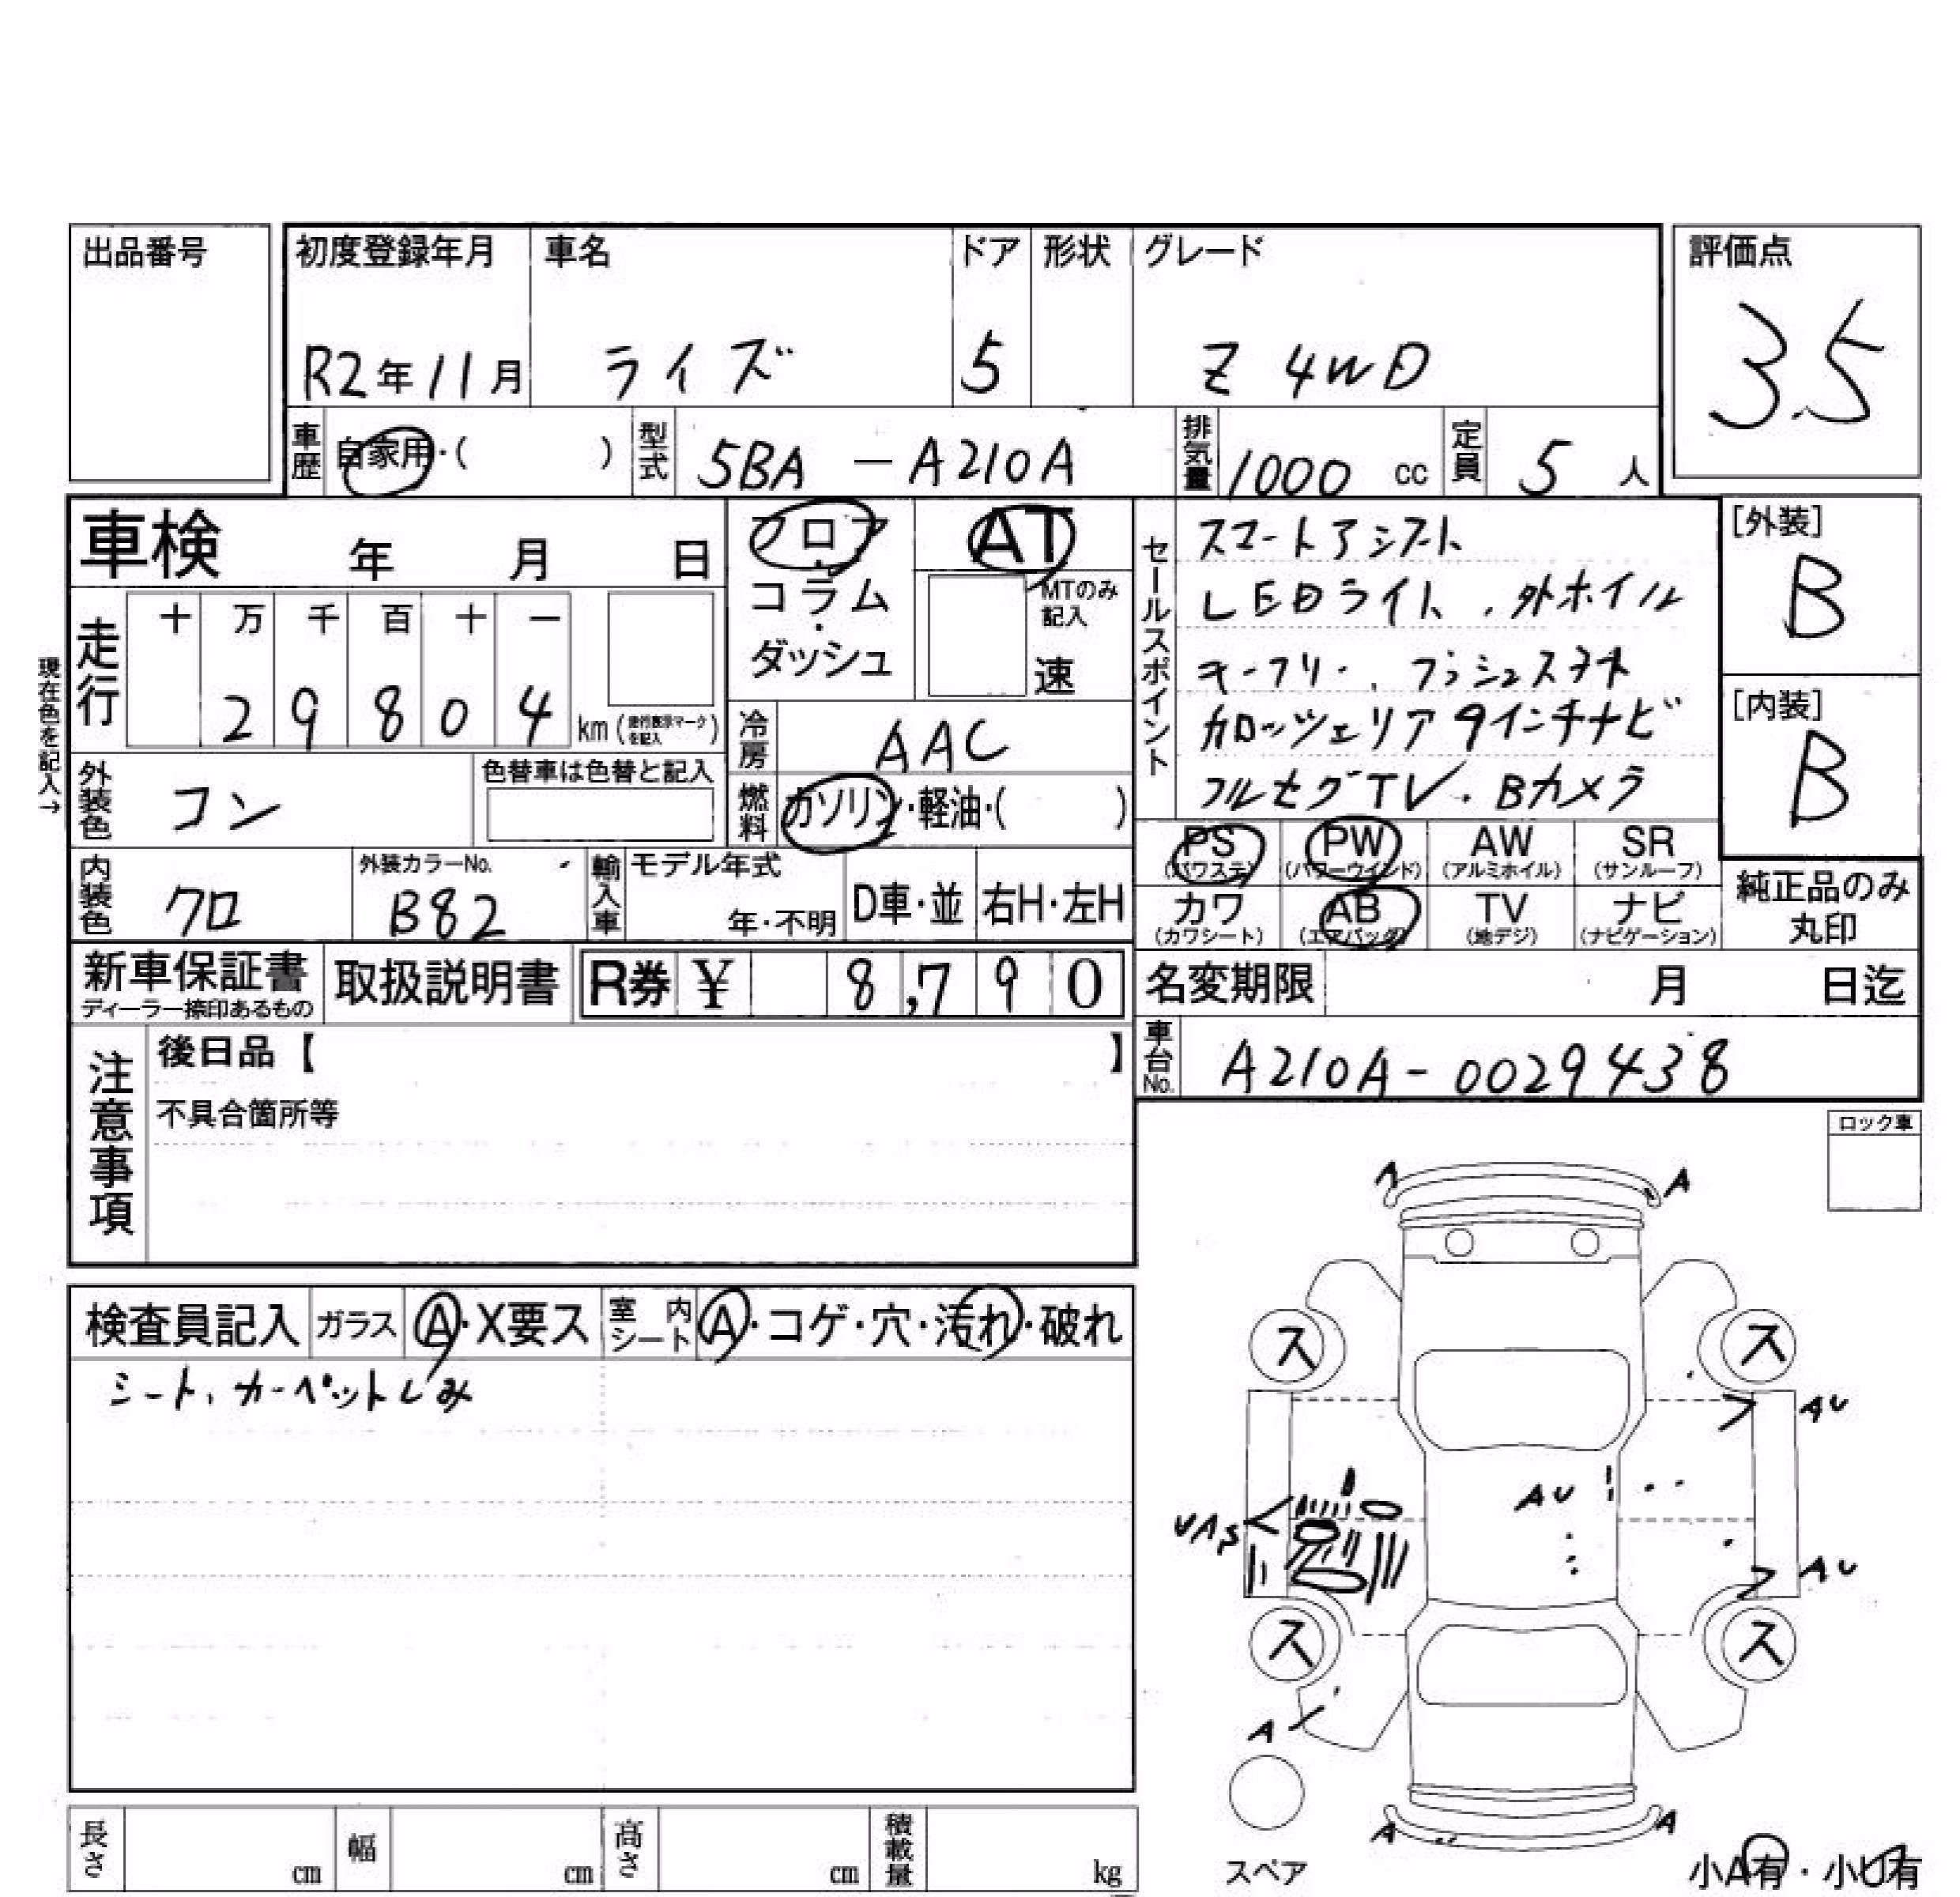 出品番号
初度登録年月 車名 ドア 形状 グレード
評価点
R2年11月 ライズ 5 Z 4WD
3.5
車歴 自家用・( ) 型式 5BA-A210A 排気量 1000 cc 定員 5人
車検 年 月 日
フロア・コラム・ダッシュ
AT
MTのみ記入
速
セールスポイント
スマートアシスト
LEDライト、外ホイル
キーフリー、プッシュスタート
カロッツェリア9インチナビ
フルセグTV、Bカメラ
[外装]
B
[内装]
B
現在色を記入→
走行 十 万 千 百 十 一
2 9 8 0 4 km(走行表示マークを記入)
冷房 AAC
外装色 コン 色替車は色替と記入
燃料 ガソリン・軽油・( )
PS(パワステ) PW(パワーウインド) AW(アルミホイル) SR(サンルーフ)
カワ(カワシート) AB(エアバッグ) TV(地デジ) ナビ(ナビゲーション)
純正品のみ丸印
内装色 クロ 外装カラーNo. B82 輸入車 モデル年式 年・不明 D車・並 右H・左H
新車保証書 ディーラー捺印あるもの 取扱説明書 R券 ¥ 8,790
名変期限 月 日迄
車台No. A210A-0029438
注意事項
後日品【 】
不具合箇所等
ロック車
検査員記入 ガラス A・X要ス 室内シート A・コゲ・穴・汚れ・破れ
シート、カーペットしみ
A A
ス ス
AU
AU
UAS
AU
ス ス
A
A A
スペア
小A有・小U有
長さ cm 幅 cm 高さ cm 積載量 kg